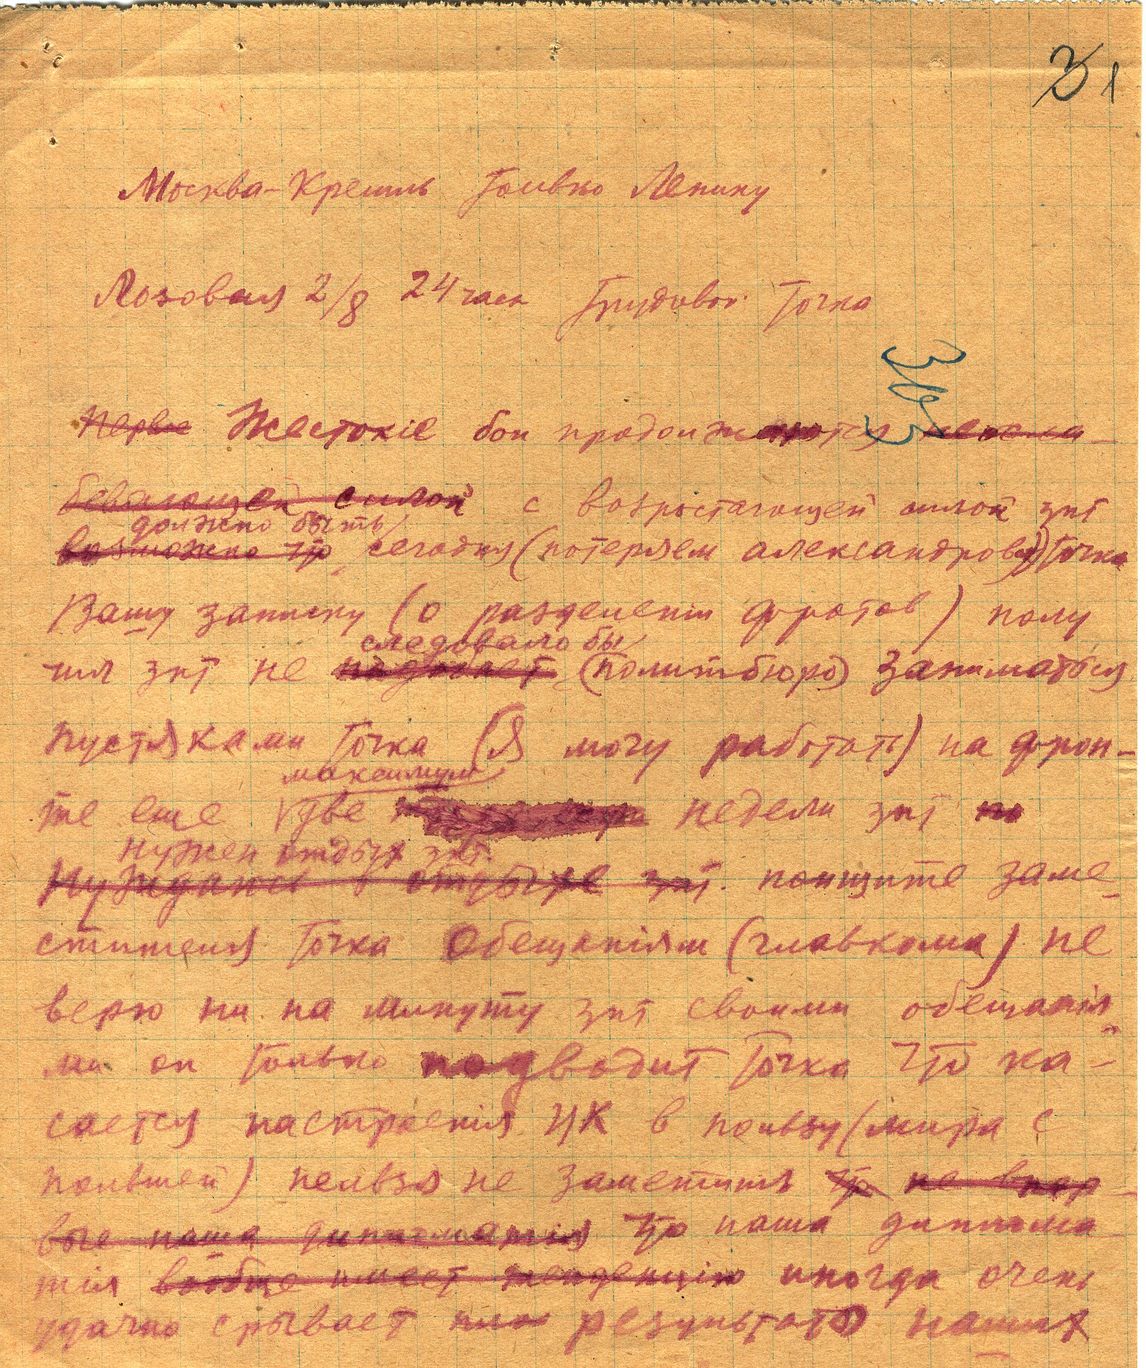 31
Москва-Кремль Только Ленину
Лозовая 2/8 24 часа Трудовой Точка
Жестокіе бои продолжаются
бевающей силой с возростающей силой зпт
должно быть
возможно что сегодня (потеряем александровск) Точка
Вашу записку (о разделеніи фротов) полу
следовало бы
чил зпт не (политбюро) заниматься
пустяками Точка (Я могу работать) на фрон-
максимум
те еще две недели зпт но
нужен отдых зпт
Нуждаюсь в отдыхе зпт. поищите заме-
стителя Точка Обещаніям (главкома) не
верю ни на минуту зпт своими обещанія
ми он только подводит Точка Что ка-
сается настроенія ЦК в пользу (мира с
польшей) нельзя не заметить что не впер-
вые наша дипломатія что наша диплома
тія вообще имеет тенденцію иногда очень
удачно срывает результаты наших